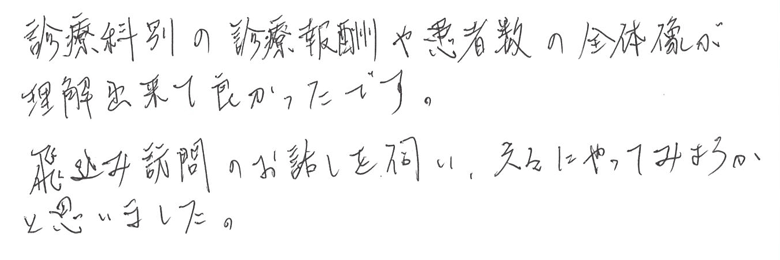 診療科別の診療報酬や患者数の全体像が
理解出来て良かったです。
飛込み訪問のお話しを伺い、元々にやってみようか
と思いました。